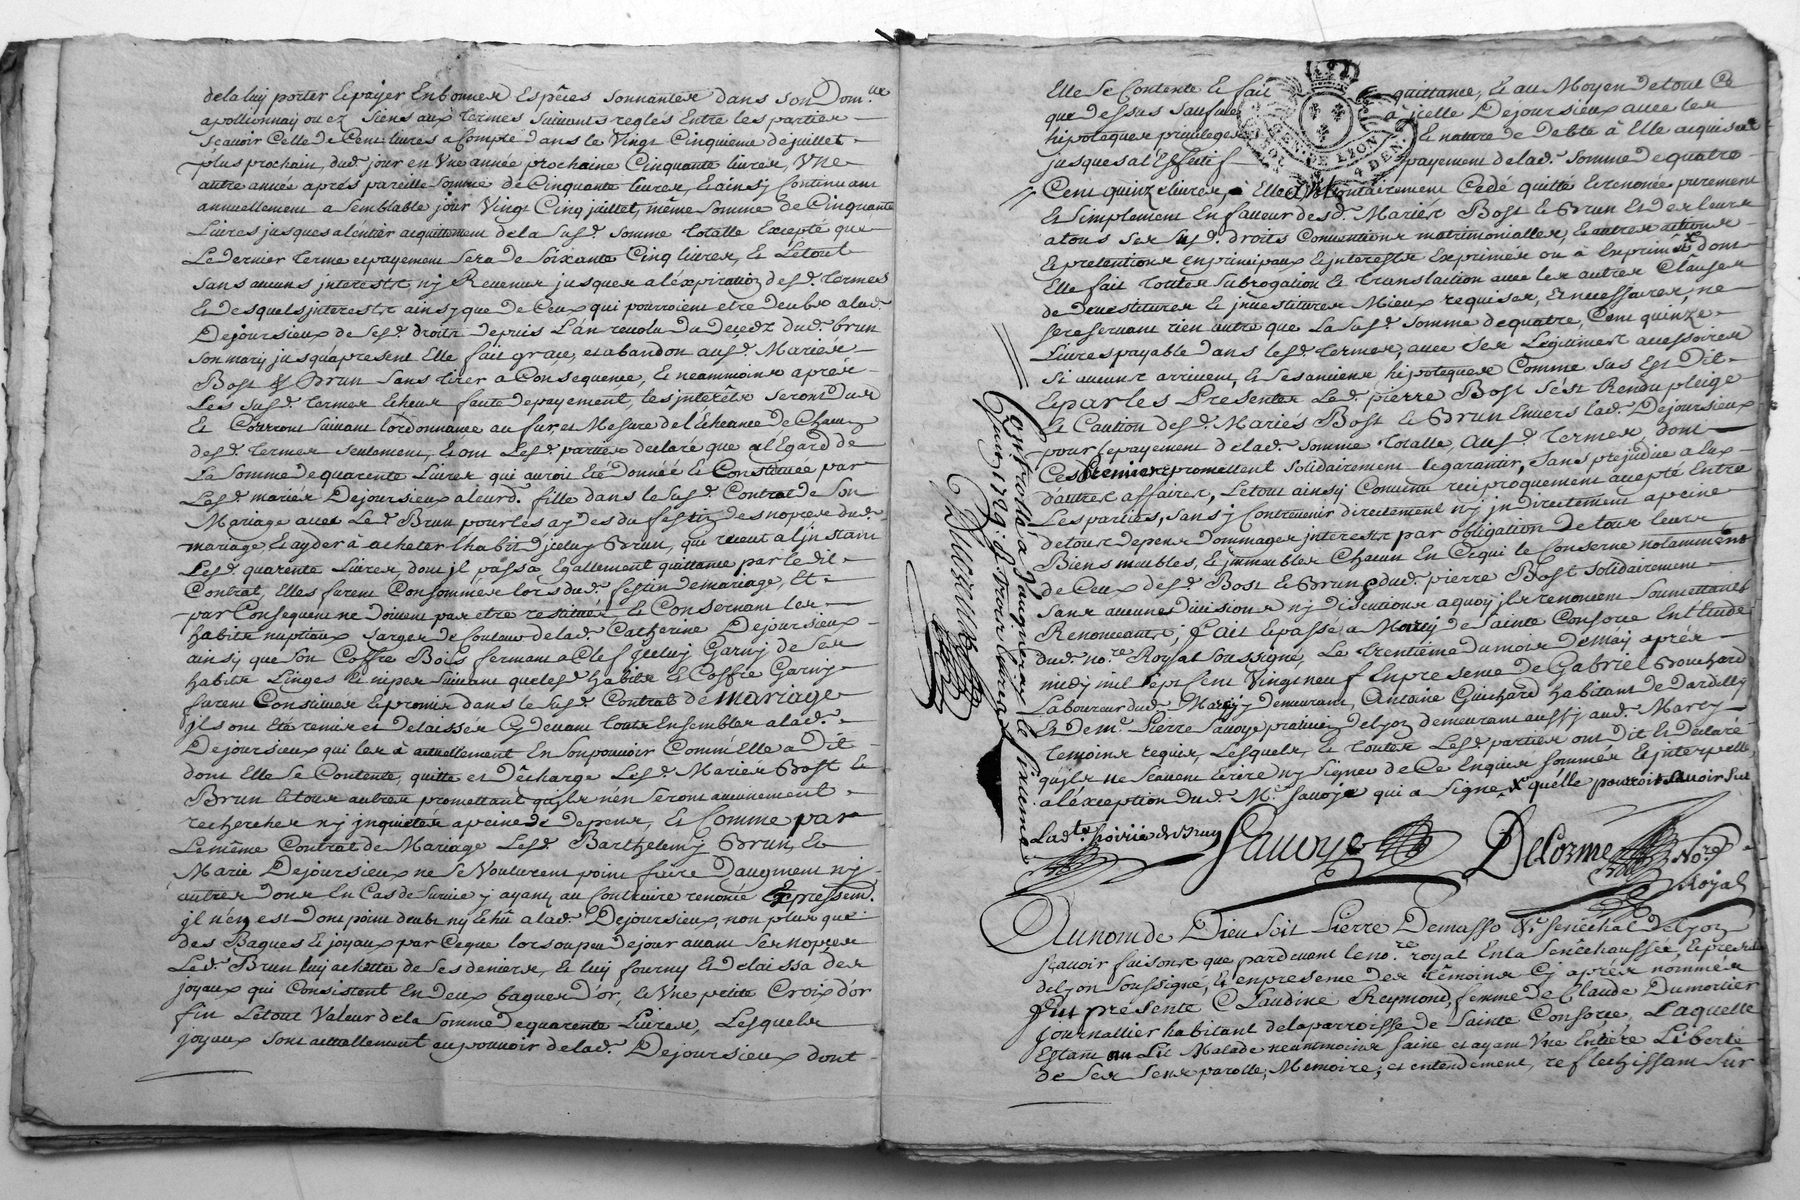 delaluy porter Et payer En bonnes Espéces sonnantes dans son Dom.lle
apollionnay ou ez siens aux termes suivants reglés Entre les parties
scavoir Celle de Cent livres a Compte dans le Vingt Cinquieme de juillet
plus prochain, dud. jour en Une année prochaine Cinquante livres, Une
autre année aprés pareille somme de Cinquante livres, Et ainsy Continuant
annuellement a semblable jour Vingt Cinq juillet, même somme de Cinquante
Livres jusques a lentier acquittement de la susd. somme totalle Excepté que
Le dernier terme et payement sera de soixante Cinq livres, Et Le tout
sans aucuns jnterests ny Revenus jusques a léxpiration desd. termes
Et desquels jnterests ainsy que de Ceux qui pourroient etre deubs a lad.
Dejoursieux de sesd. droits depuis L'an revolu du deçedz dud. brun
son mary jusqu'apresent Elle fait grace, et abandon ausd. Mariés
Bost & Brun sans tirer a Consequence, Et neammoins aprés
Les susd. termes Echeus faute de payement, les jnterêts seront dus
Et Courront suivant l'ordonnance au fur et Mesure de l'écheance de Chacuns
desd. termes seulement, Et ont Lesd. parties declaré que a l'Egard de
La somme de quarente Livres qui auroit Eté donnée Et Constituée par
Lesd. mariés Dejoursieux a leurd. fille dans le susd. Contrat de son
Mariage avec Led. Brun pour lés aydes du festin des nopces dud.
mariage Et ayder à acheter l'habit d'jceluy Brun, qui reçeut a l'jnstant
Lesd. quarente Livres, dont jl passa Egallement quittance par le dit
Contrat, Elles furent Consommées lors dud. festin de mariage, Et
par Consequent ne doivent pas etre restituées, Et Consernant les
habits nuptiaux sarges de Couleur de lad. Catherine Dejoursieux
ainsy que son Coffre Bois fermant a Clef jceluy Garny de ses
habits Linges Et nipes suivant que lesd. habits Et Coffre Garny
furent Constitués Et promis dans le susd. Contrat de mariage
jls ont Eté remis et delaissés Cy devant toute Ensembles a lad.
Dejoursieux qui les à actuellement En son pouvoir Comm'Elle a Dit
dont Elle se Contente, quitte et decharge Lesd. Mariés Bost Et
Brun Et tous autres promettant qu'jls n'en seront aucunement
rechercher ny jnquieter a peine de depens, Et Comme par
Lemême Contrat de Mariage Lesd. Barthelemy Brun, Et
Marie Dejoursieux ne se Voulurent point faire D'augment ny
autres dons En Cas de survie y ayant au Contraire renoncé Expressem.t
jl n'en est dont point deubt ny Echû a lad. Dejoursieux, non plus que
des Bagues Et joyaux par Ceque lors ou peu de jour avant ses nopces
Led. Brun luy achetta de ses deniers, Et luy fourny Et delaissa des
joyaux qui Consistent En deux bagues d'or, Et Une petite Croix d'or
fin Le tout Valeur de la somme de quarente Livres, Lesquels
joyaux sont actuallement au pouvoir de lad. Dejoursieux dont
Elle se Contente Et fait quittance, Et au Moyen de tout Ce
que dessus sauf à jcelle Dejoursieux avec les
hipoteques privileges Et nature de debte à Elle acquises
jusques a l'Effectif payement de lad. somme de quatre
GEN. DE LYON
Cent quinze livres, Elle a Volontairement Cedé quitté Et renoncé purement
Et simplement En faveur desd. Mariés Bost Et Brun Et des leurs
a tous ses susd. droits Conventions matrimonialles, Et autres actions
Et pretentions en principaux Et jnterests Exprimés ou à Exprimés dont
Elle fait toutes subrogation Et translaction avec les autres Clauses
de devestitures Et jnvestitures Mieux requises, Et necessaires, ne
se reservant rien autre que La susd. somme de quatre, Cent quinze
Livres payable dans lesd. termes, avec ses Legitimes accessoires
si aucuns arrivent, Et ses anciens hipoteques Comme sus Est Dit
Et par les Presentes Led. pierre Bost s'ést Rendu pleige
Et Caution desd. Mariés Bost Et Brun Envers lad. Dejoursieux
pour le payement de lad. somme totalle, ausd. termes, dont
Ces premiers promettent solidairement le garantir, sans prejudice a eux
d'autres affaires, Le tout ainsy Convenu reciproquement accepté Entre
Les parties, sans y Contrevenir directement ny jndirectement a peine
de tous depens dommages jnterests par obligation de tous leurs
Biens meubles, Et jmmeubles Chacun En Cequi le Conserne notamment
de Ceux desd. Bost Et Brun Et dud. pierre Bost solidairement
sans aucunes divisions ny discutions a quoy jls renoncent soumettants
Renonceants; fait Et passé a Marcy de Sainte Consorce En l'Etude
dud. no.re Royal soussigné, Le trentieme du mois de May aprés
midy mil sept Cent Vingt neuf En presence de Gabriel Bouchard
Laboureur dud. Marcy y demeurant, Antoine Guichard habitant de Dardilly
Et de m.e Pierre Savoye praticien de Lyon demeurant aussy aud. Marcy
temoins requis, Lesquels, Et toutes Lesd. parties ont dit Et declaré
qu'jls ne scavent Ecrire ny signer de Ce Enquis sommés Et jnterpellés
a léxception dud. M.e Savoye qui a signé, quélle pourroit avoir sur
Ladte hoirie de Brun Savoye Delorme No.re
Royal
Controllé a Vaugneray le sixieme
juin 1729. R. trois livres
Au nom de Dieu soit Pierre Demasso &c senéchal de Lyon
scavoir faisons que pardevant le no.re royal En la senéchaussée, Et presid.
de Lyon soussigné, Et en presence des témoins Cy aprés nommés
fut presente Claudine Reymond, femme de Claude Dumortier
journallier habitant de la parroisse de Sainte Consorce, Laquelle
Estant au Lit Malade neammoins saine et ayant Une Entière Liberté
de ses sens parolle, Memoire, et entendement, reflechissant sur